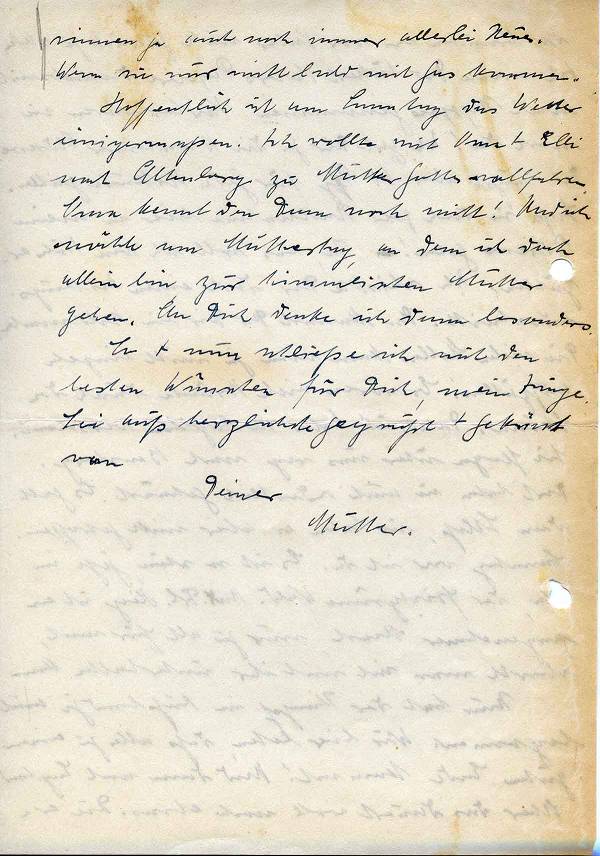 sinnen ja auch noch immer allerlei Neues.
Wenn sie nur nicht bald mit Gas kommen.
Hoffentlich ist am Sonntag das Wetter
einigermaßen. Ich wollte mit Oma + Elli
nach Altenberg zu Mutter Gottes wallfahren.
Oma kennt den Dom noch nicht! Und ich
möchte am Muttertag, an dem ich doch
allein bin zur himmlischen Mutter
gehen. An Dich denke ich dann besonders.
So + nun schließe ich mit den
besten Wünschen für Dich, mein Junge.
Sei aufs herzlichste gegrüßt + geküsst
von
Deiner
Mutter.